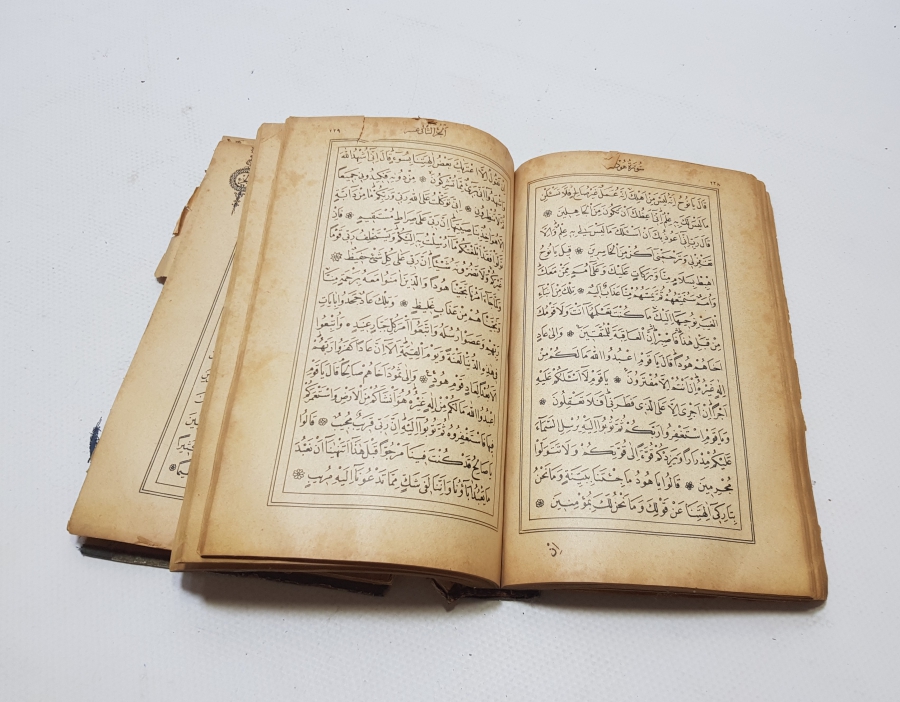 سُورَةُ هُودٍ
٢٢٨
قَالَ يَا نُوحُ اِنَّهُ لَيْسَ مِنْ اَهْلِكَ اِنَّهُ عَمَلٌ غَيْرُ صَالِحٍ فَلَا تَسْئَلْنِ
مَا لَيْسَ لَكَ بِهِ عِلْمٌ اِنِّى اَعِظُكَ اَنْ تَكُونَ مِنَ الْجَاهِلِينَ
قَالَ رَبِّ اِنِّى اَعُوذُ بِكَ اَنْ اَسْئَلَكَ مَا لَيْسَ لِى بِهِ عِلْمٌ وَاِلَّا
تَغْفِرْ لِى وَتَرْحَمْنِى اَكُنْ مِنَ الْخَاسِرِينَ قِيلَ يَا نُوحُ
اهْبِطْ بِسَلَامٍ مِنَّا وَبَرَكَاتٍ عَلَيْكَ وَعَلٰى اُمَمٍ مِمَّنْ مَعَكَ
وَاُمَمٌ سَنُمَتِّعُهُمْ ثُمَّ يَمَسُّهُمْ مِنَّا عَذَابٌ اَلِيمٌ تِلْكَ مِنْ اَنْبَاءِ
الْغَيْبِ نُوحِيهَا اِلَيْكَ مَا كُنْتَ تَعْلَمُهَا اَنْتَ وَلَا قَوْمُكَ
مِنْ قَبْلِ هٰذَا فَاصْبِرْ اِنَّ الْعَاقِبَةَ لِلْمُتَّقِينَ وَاِلٰى عَادٍ
اَخَاهُمْ هُودًا قَالَ يَا قَوْمِ اعْبُدُوا اللّٰهَ مَا لَكُمْ مِنْ
اِلٰهٍ غَيْرُهُ اِنْ اَنْتُمْ اِلَّا مُفْتَرُونَ يَا قَوْمِ لَا اَسْئَلُكُمْ عَلَيْهِ
اَجْرًا اِنْ اَجْرِىَ اِلَّا عَلَى الَّذِى فَطَرَنِى اَفَلَا تَعْقِلُونَ
وَيَا قَوْمِ اسْتَغْفِرُوا رَبَّكُمْ ثُمَّ تُوبُوا اِلَيْهِ يُرْسِلِ السَّمَاءَ
عَلَيْكُمْ مِدْرَارًا وَيَزِدْكُمْ قُوَّةً اِلٰى قُوَّتِكُمْ وَلَا تَتَوَلَّوْا
مُجْرِمِينَ قَالُوا يَا هُودُ مَا جِئْتَنَا بِبَيِّنَةٍ وَمَا نَحْنُ
بِتَارِكِى اٰلِهَتِنَا عَنْ قَوْلِكَ وَمَا نَحْنُ لَكَ بِمُؤْمِنِينَ
اِنْ
اَلْجُزْءُ الثَّانِى عَشَرَ
٢٢٩
اِنْ نَقُولُ اِلَّا اعْتَرٰيكَ بَعْضُ اٰلِهَتِنَا بِسُوءٍ قَالَ اِنِّى اُشْهِدُ اللّٰهَ
وَاشْهَدُوا اَنِّى بَرِىءٌ مِمَّا تُشْرِكُونَ مِنْ دُونِهِ فَكِيدُونِى جَمِيعًا
ثُمَّ لَا تُنْظِرُونِ اِنِّى تَوَكَّلْتُ عَلَى اللّٰهِ رَبِّى وَرَبِّكُمْ مَا مِنْ دَابَّةٍ
اِلَّا هُوَ اٰخِذٌ بِنَاصِيَتِهَا اِنَّ رَبِّى عَلٰى صِرَاطٍ مُسْتَقِيمٍ فَاِنْ
تَوَلَّوْا فَقَدْ اَبْلَغْتُكُمْ مَا اُرْسِلْتُ بِهِ اِلَيْكُمْ وَيَسْتَخْلِفُ رَبِّى قَوْمًا
غَيْرَكُمْ وَلَا تَضُرُّونَهُ شَيْئًا اِنَّ رَبِّى عَلٰى كُلِّ شَىْءٍ حَفِيظٌ
وَلَمَّا جَاءَ اَمْرُنَا نَجَّيْنَا هُودًا وَالَّذِينَ اٰمَنُوا مَعَهُ بِرَحْمَةٍ مِنَّا
وَنَجَّيْنَاهُمْ مِنْ عَذَابٍ غَلِيظٍ وَتِلْكَ عَادٌ جَحَدُوا بِاٰيَاتِ
رَبِّهِمْ وَعَصَوْا رُسُلَهُ وَاتَّبَعُوا اَمْرَ كُلِّ جَبَّارٍ عَنِيدٍ وَاُتْبِعُوا
فِى هٰذِهِ الدُّنْيَا لَعْنَةً وَيَوْمَ الْقِيٰمَةِ اَلَا اِنَّ عَادًا كَفَرُوا رَبَّهُمْ
اَلَا بُعْدًا لِعَادٍ قَوْمِ هُودٍ وَاِلٰى ثَمُودَ اَخَاهُمْ صَالِحًا قَالَ يَا قَوْمِ
اعْبُدُوا اللّٰهَ مَا لَكُمْ مِنْ اِلٰهٍ غَيْرُهُ هُوَ اَنْشَاَكُمْ مِنَ الْاَرْضِ وَاسْتَعْمَرَكُمْ
فِيهَا فَاسْتَغْفِرُوهُ ثُمَّ تُوبُوا اِلَيْهِ اِنَّ رَبِّى قَرِيبٌ مُجِيبٌ قَالُوا
يَا صَالِحُ قَدْ كُنْتَ فِينَا مَرْجُوًّا قَبْلَ هٰذَا اَتَنْهٰينَا اَنْ نَعْبُدَ
مَا يَعْبُدُ اٰبَاؤُنَا وَاِنَّنَا لَفِى شَكٍّ مِمَّا تَدْعُونَا اِلَيْهِ مُرِيبٍ